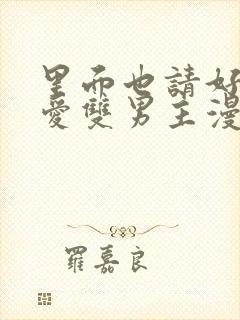 里而也請好
愛雙男主漫
羅嘉良